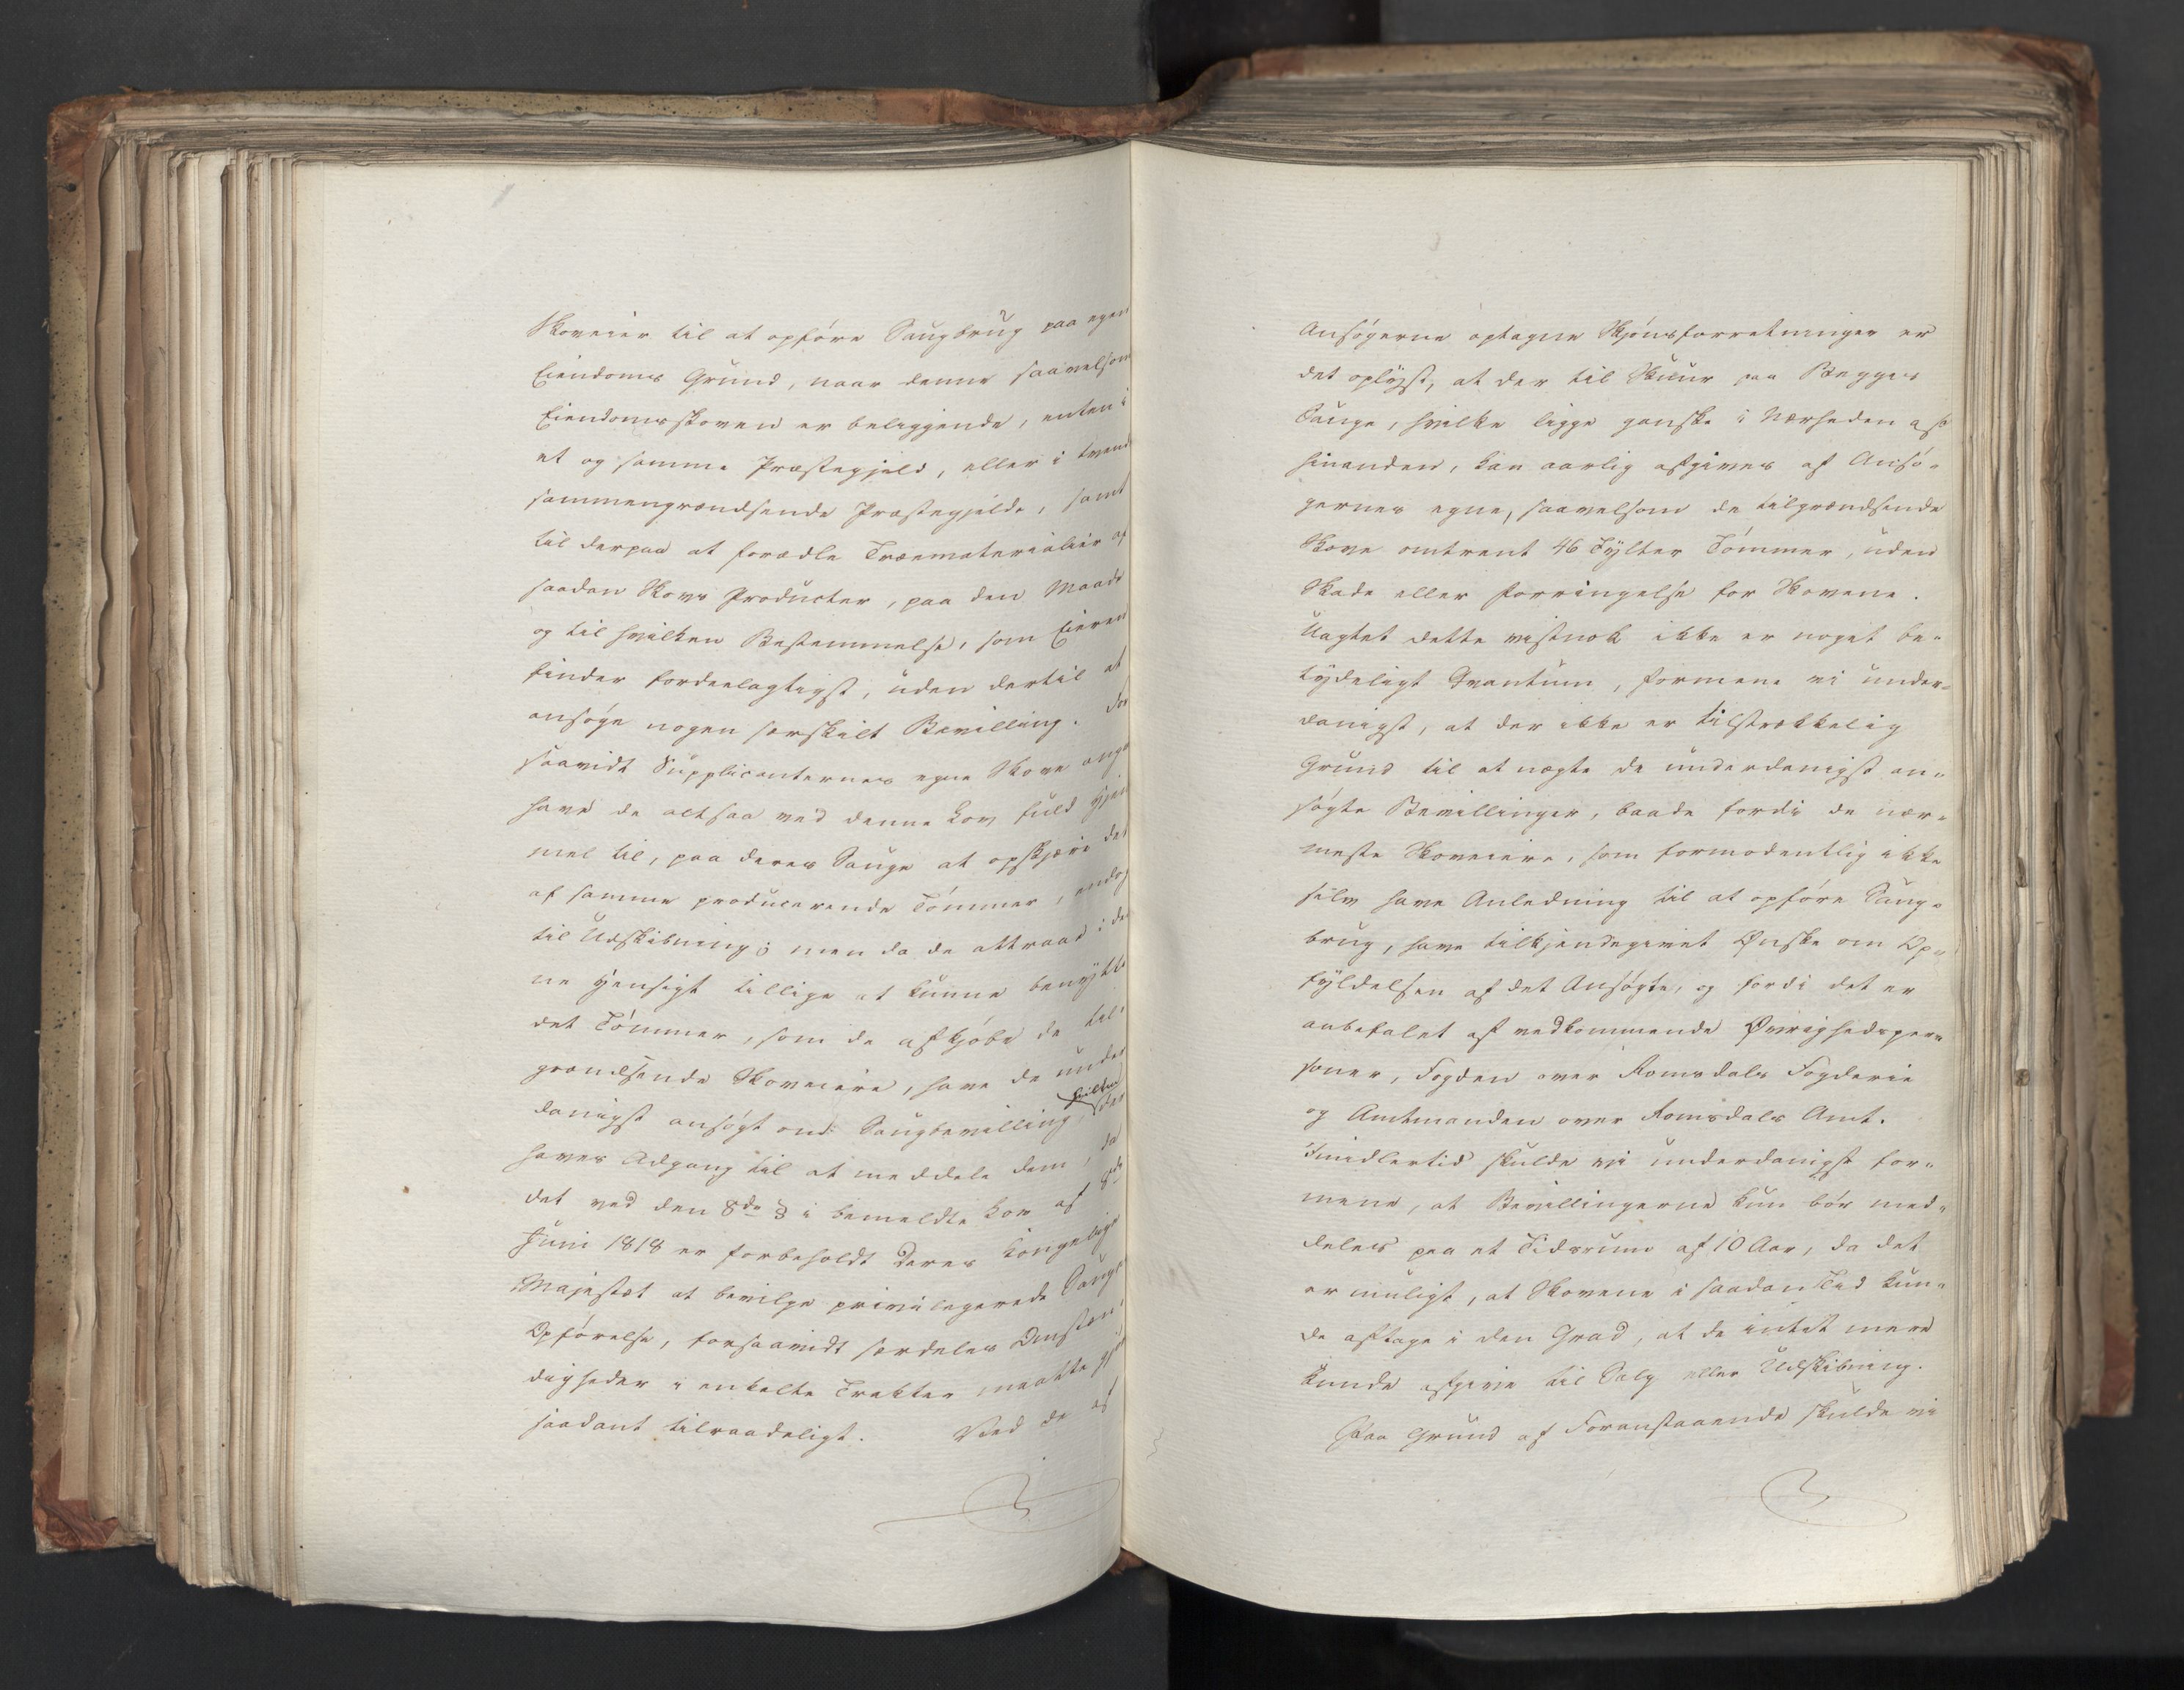 Skoveier til at opføre Saugbrug paa egen
Eiendoms Grund, naar denne saavelsom
Eiendomsskoven er beliggende, enten i
et og samme Præstegjeld, eller i tvend
sammengrændsende Præstegjelde, samt
til derpaa at forædle Træematerialier af
saadan Skovs Producter, paa den Maade
og til hvilken Bestemmelse, som Eieren
finder fordeelagtigst, uden dertil at
ansøge nogen særskilt Bevilling. For
saavidt Supplicanternes egne Skove ang
have de altsaa ved denne Lov fuld Hjem
mel til, paa deres Sauge at opskjære det
af samme producerende Tømmer, endog
til Udskibning; men da de attraae i den
ne Hensigt tillige at kunne benytte
det Tømmer, som de afkjøbe de til
grændsende Skoveiere, have de under
danigst ansøgt om Saugbevilling, hvilken der
haves Adgang til at meddele dem, da
det ved den 8de § i bemeldte Lov af 8de
Juni 1818 er forbeholdt Deres Kongelige
Majestæt at bevilge privilegerede Sauges
Opførelse, forsaavidt særdeles Omstæn
digheder i enkelte Trakter maatte gjøre
saadant tilraadeligt. Ved de af
Ansøgerne optagne Skjønsforretninger er
det oplyst, at der til Skuur paa Begges
Sauge, hvilke ligge ganske i Nærheden af
hinanden, kan aarlig afgives af Ansø-
gernes egne, saavelsom de tilgrændsende
Skove omtrent 46 Tylter Tømmer, uden
Skade eller Forringelse for Skovene.
Uagtet dette vistnok ikke er noget be-
tydeligt Qvantum, formene vi under-
danigst, at der ikke er tilstrækkelig
Grund til at nægte de underdanigst an-
søgte Bevillinger, baade fordi de nær-
meste Skoveiere, som formodentlig ikke
selv have Anledning til at opføre Saug-
brug, have tilkjendegivet Ønske om Op-
fyldelsen af det Ansøgte, og fordi det er
anbefalet af vedkommende Øvrighedsper-
soner, Fogden over Romsdals Fogderie
og Amtmanden over Romsdals Amt.
Imidlertid skulde vi underdanigst for-
mene, at Bevillingerne kun bør med-
deles paa et Tidsrum af 10 Aar, da det
er muligt, at Skovene i saadan Tid kun-
de aftage i den Grad, at de intet mere
kunde afgive til Salg eller Udskibning.
Paa Grund af Foranstaaende skulde vi